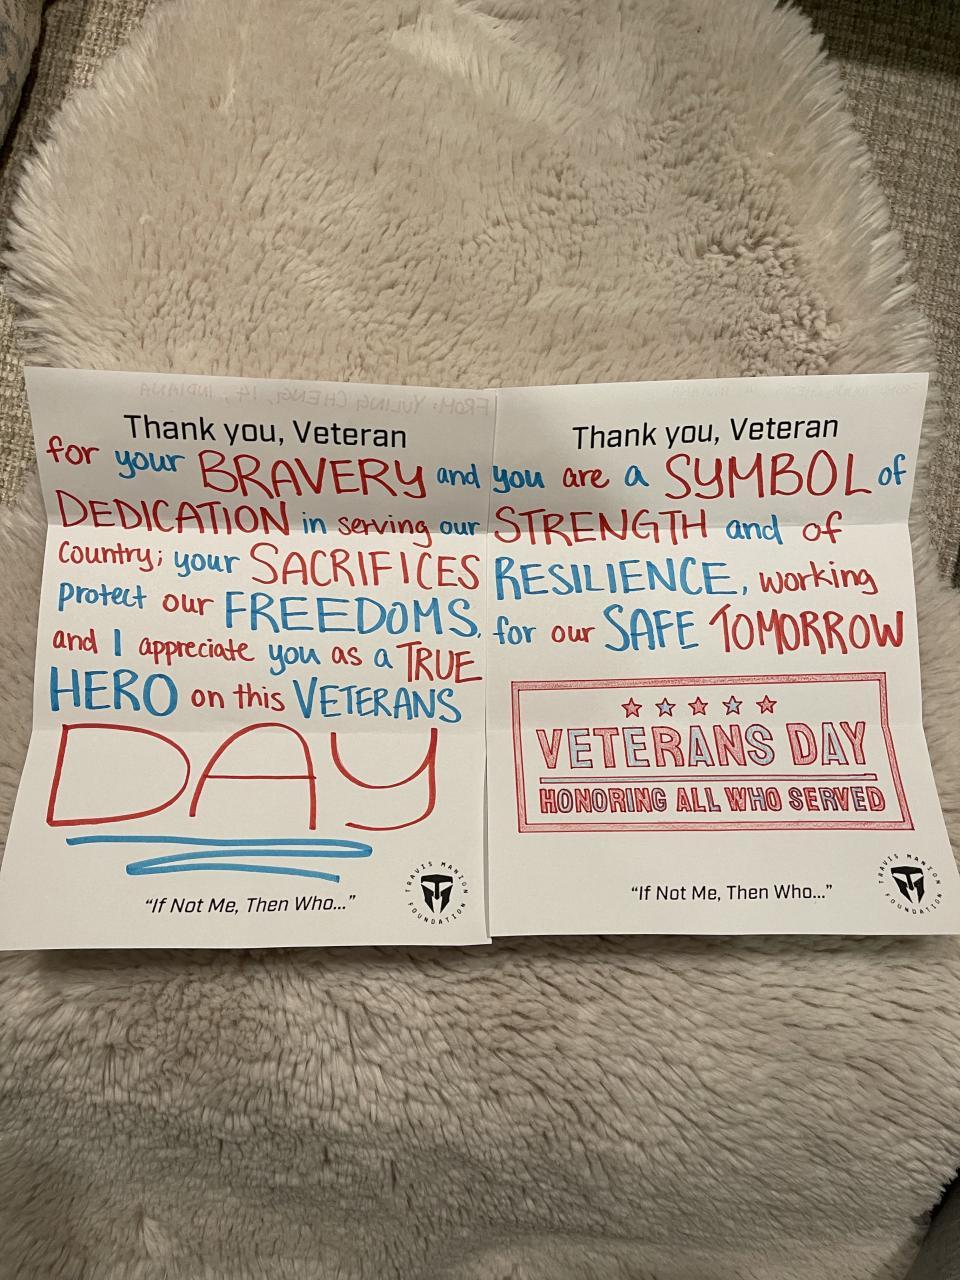 FROM: YULING CHENG, 14, INDIANA
Thank you, Veteran
for your BRAVERY and
DEDICATION in serving our
country; your SACRIFICES
protect our FREEDOMS,
and I appreciate you as a TRUE
HERO on this VETERANS
DAY
"If Not Me, Then Who..."
TRAVIS MANION FOUNDATION
Thank you, Veteran
you are a SYMBOL of
STRENGTH and of
RESILIENCE, working
for our SAFE TOMORROW
VETERANS DAY
HONORING ALL WHO SERVED
"If Not Me, Then Who..."
TRAVIS MANION FOUNDATION